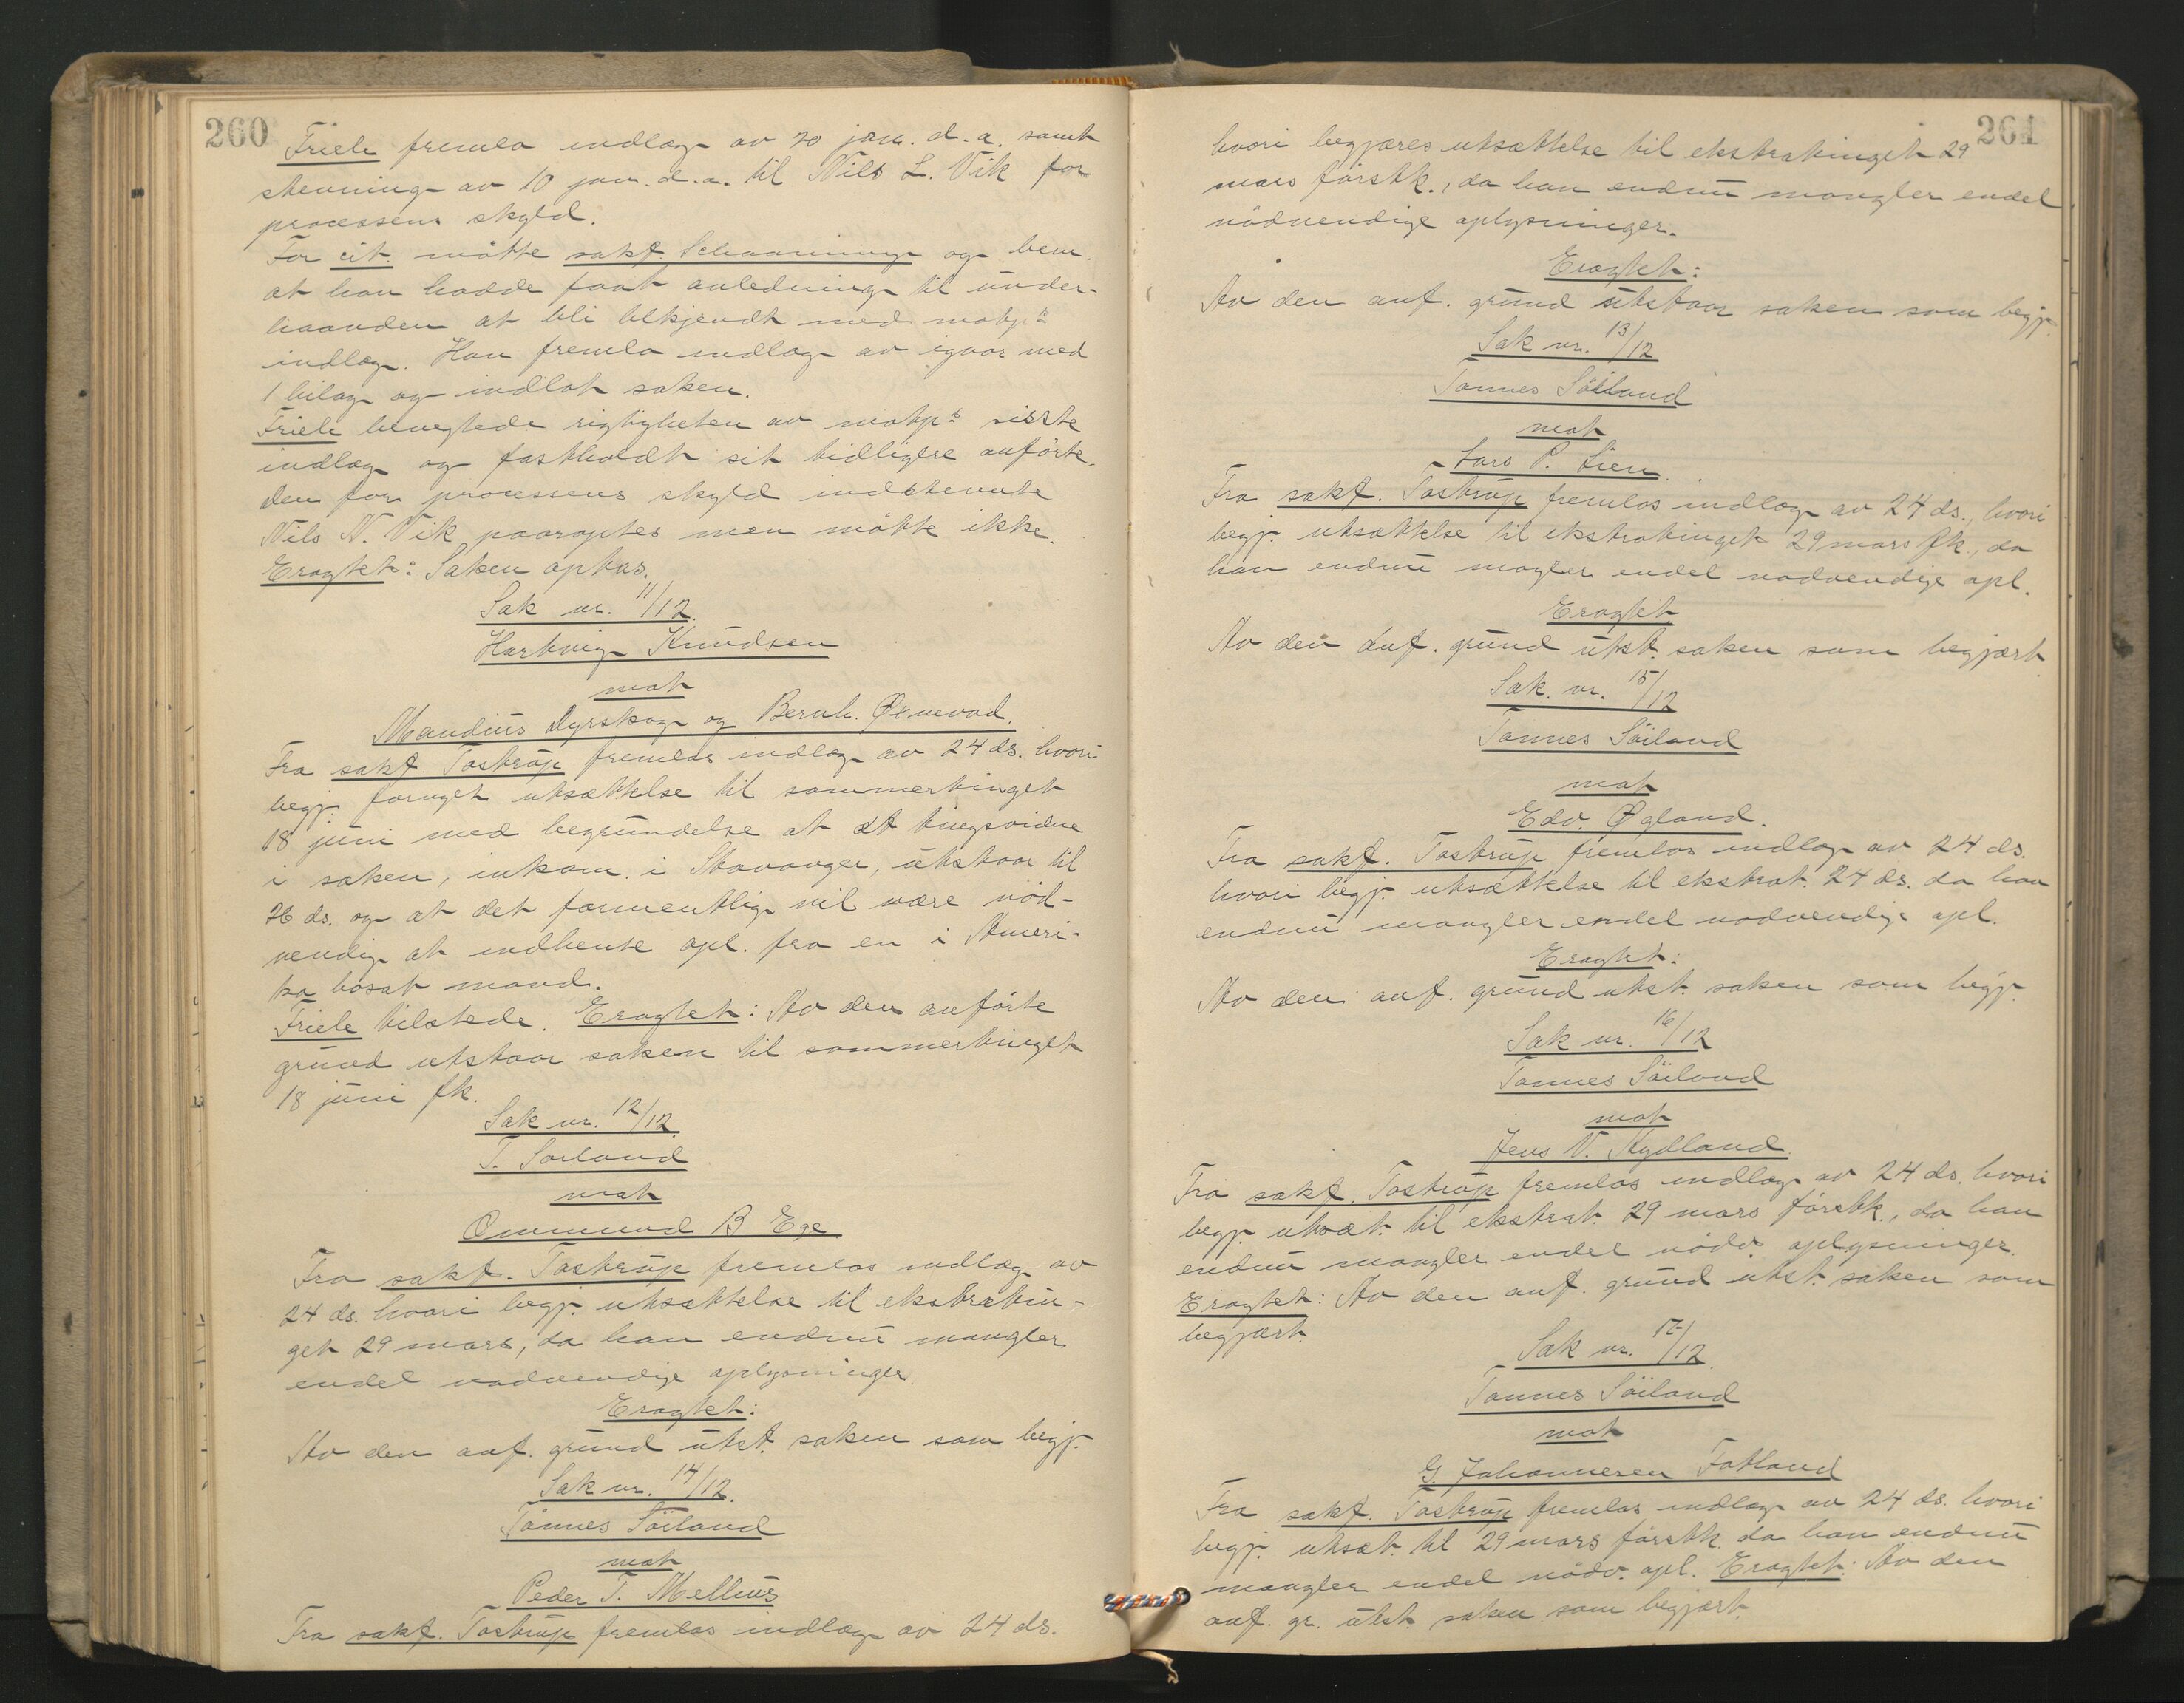 260
Friele fremla indlæg av 20 jan. d. a. samt
stevning av 10 jan. d. a. til Nils L. Vik for
processens skyld.
For cit. mötte sakf. Schaanning og bem.
at han hadde faat anledning til under-
haanden at bli bekjendt med motp.s
indlæg. Han fremla indlæg av igaar med
1 bilag og indlot saken.
Friele benegtede rigtigheten av motp.s siste
indlæg og fastholdt sit tidligere anförte.
Den for processens skyld indstevnte
Nils N. Vik paaroptes men mötte ikke.
Eragtet: Saken optas.
Sak nr. 11/12.
Hartvig Knudsen
mot
Mandius Dyrskog og Bernh. Øxnevad.
Fra sakf. Tostrup fremlas indlæg av 24 ds. hvori
begj. fornyet utsættelse til sommertinget
18 juni med begrundelse at et tingsvidne
i saken, inkam. i Stavanger, utstaar til
26 ds. og at det formentlig vil være nöd-
vendig at indhente opl. fra en i Ameri-
ka bosat mand.
Friele tilstede. Eragtet: Av den anförte
grund utstaar saken til sommertinget
18 juni fk.
Sak nr. 12/12.
T. Soiland
mot
Ommund B Ege
Fra sakf. Tostrup fremlas indlæg av
24 ds. hvori begj. utsættelse til ekstratin-
get 29 mars, da han endnu mangler
endel nödvendige oplysninger.
Eragtet:
Av den anf. grund utst. saken som begj.
Sak nr. 14/12.
Tönnes Söiland
mot
Peder T. Mellius
Fra sakf. Tostrup fremlas indlæg av 24 ds.
261
hvori begjæres utsættelse til ekstratinget 29
mars förstk., da han endnu mangler endel
nödvendige oplysninger.
Eragtet:
Av den anf. grund utstaar saken som begj.
Sak nr. 13/12
Tonnes Söiland
mot
Lars P. Lien.
Fra sakf. Tostrup fremlas indlæg av 24 ds., hvori
begj. utsættelse til ekstratinget 29 mars fk., da
han endnu mogler endel nodvendige opl.
Eragtet
Av den anf. grund utst. saken som begjært
Sak. nr. 15/12
Tonnes Söiland
mot
Edv. Øgland.
Fra sakf. Tostrup fremlas indlæg av 24 ds.
hvori begj. utsættelse til ekstrat. 24 ds. da han
endnu mangler endel nodvendige opl.
Eragtet:
Av den anf. grund utst. saken som begj.
Sak nr. 16/12
Tonnes Söiland
mot
Jens V. Kydland.
Fra sakf. Tostrup fremlas indlæg av 24 ds. hvori
begj. utsæt. til ekstrat. 29 mars förstk., da han
endnu mangler endel nödv. oplysninger.
Eragtet: Av den anf. grund utst. saken som
begjært.
Sak nr. 17/12.
Tonnes Söiland
mot
G. Johannesen Fotland
Fra sakf. Tostrup fremlas indlæg av 24 ds. hvori
begj. utsæt. til 29 mars förstk. da han endnu
mangler endel nödv. opl. Eragtet: Av den
anf. gr. utst. saken som begjært.